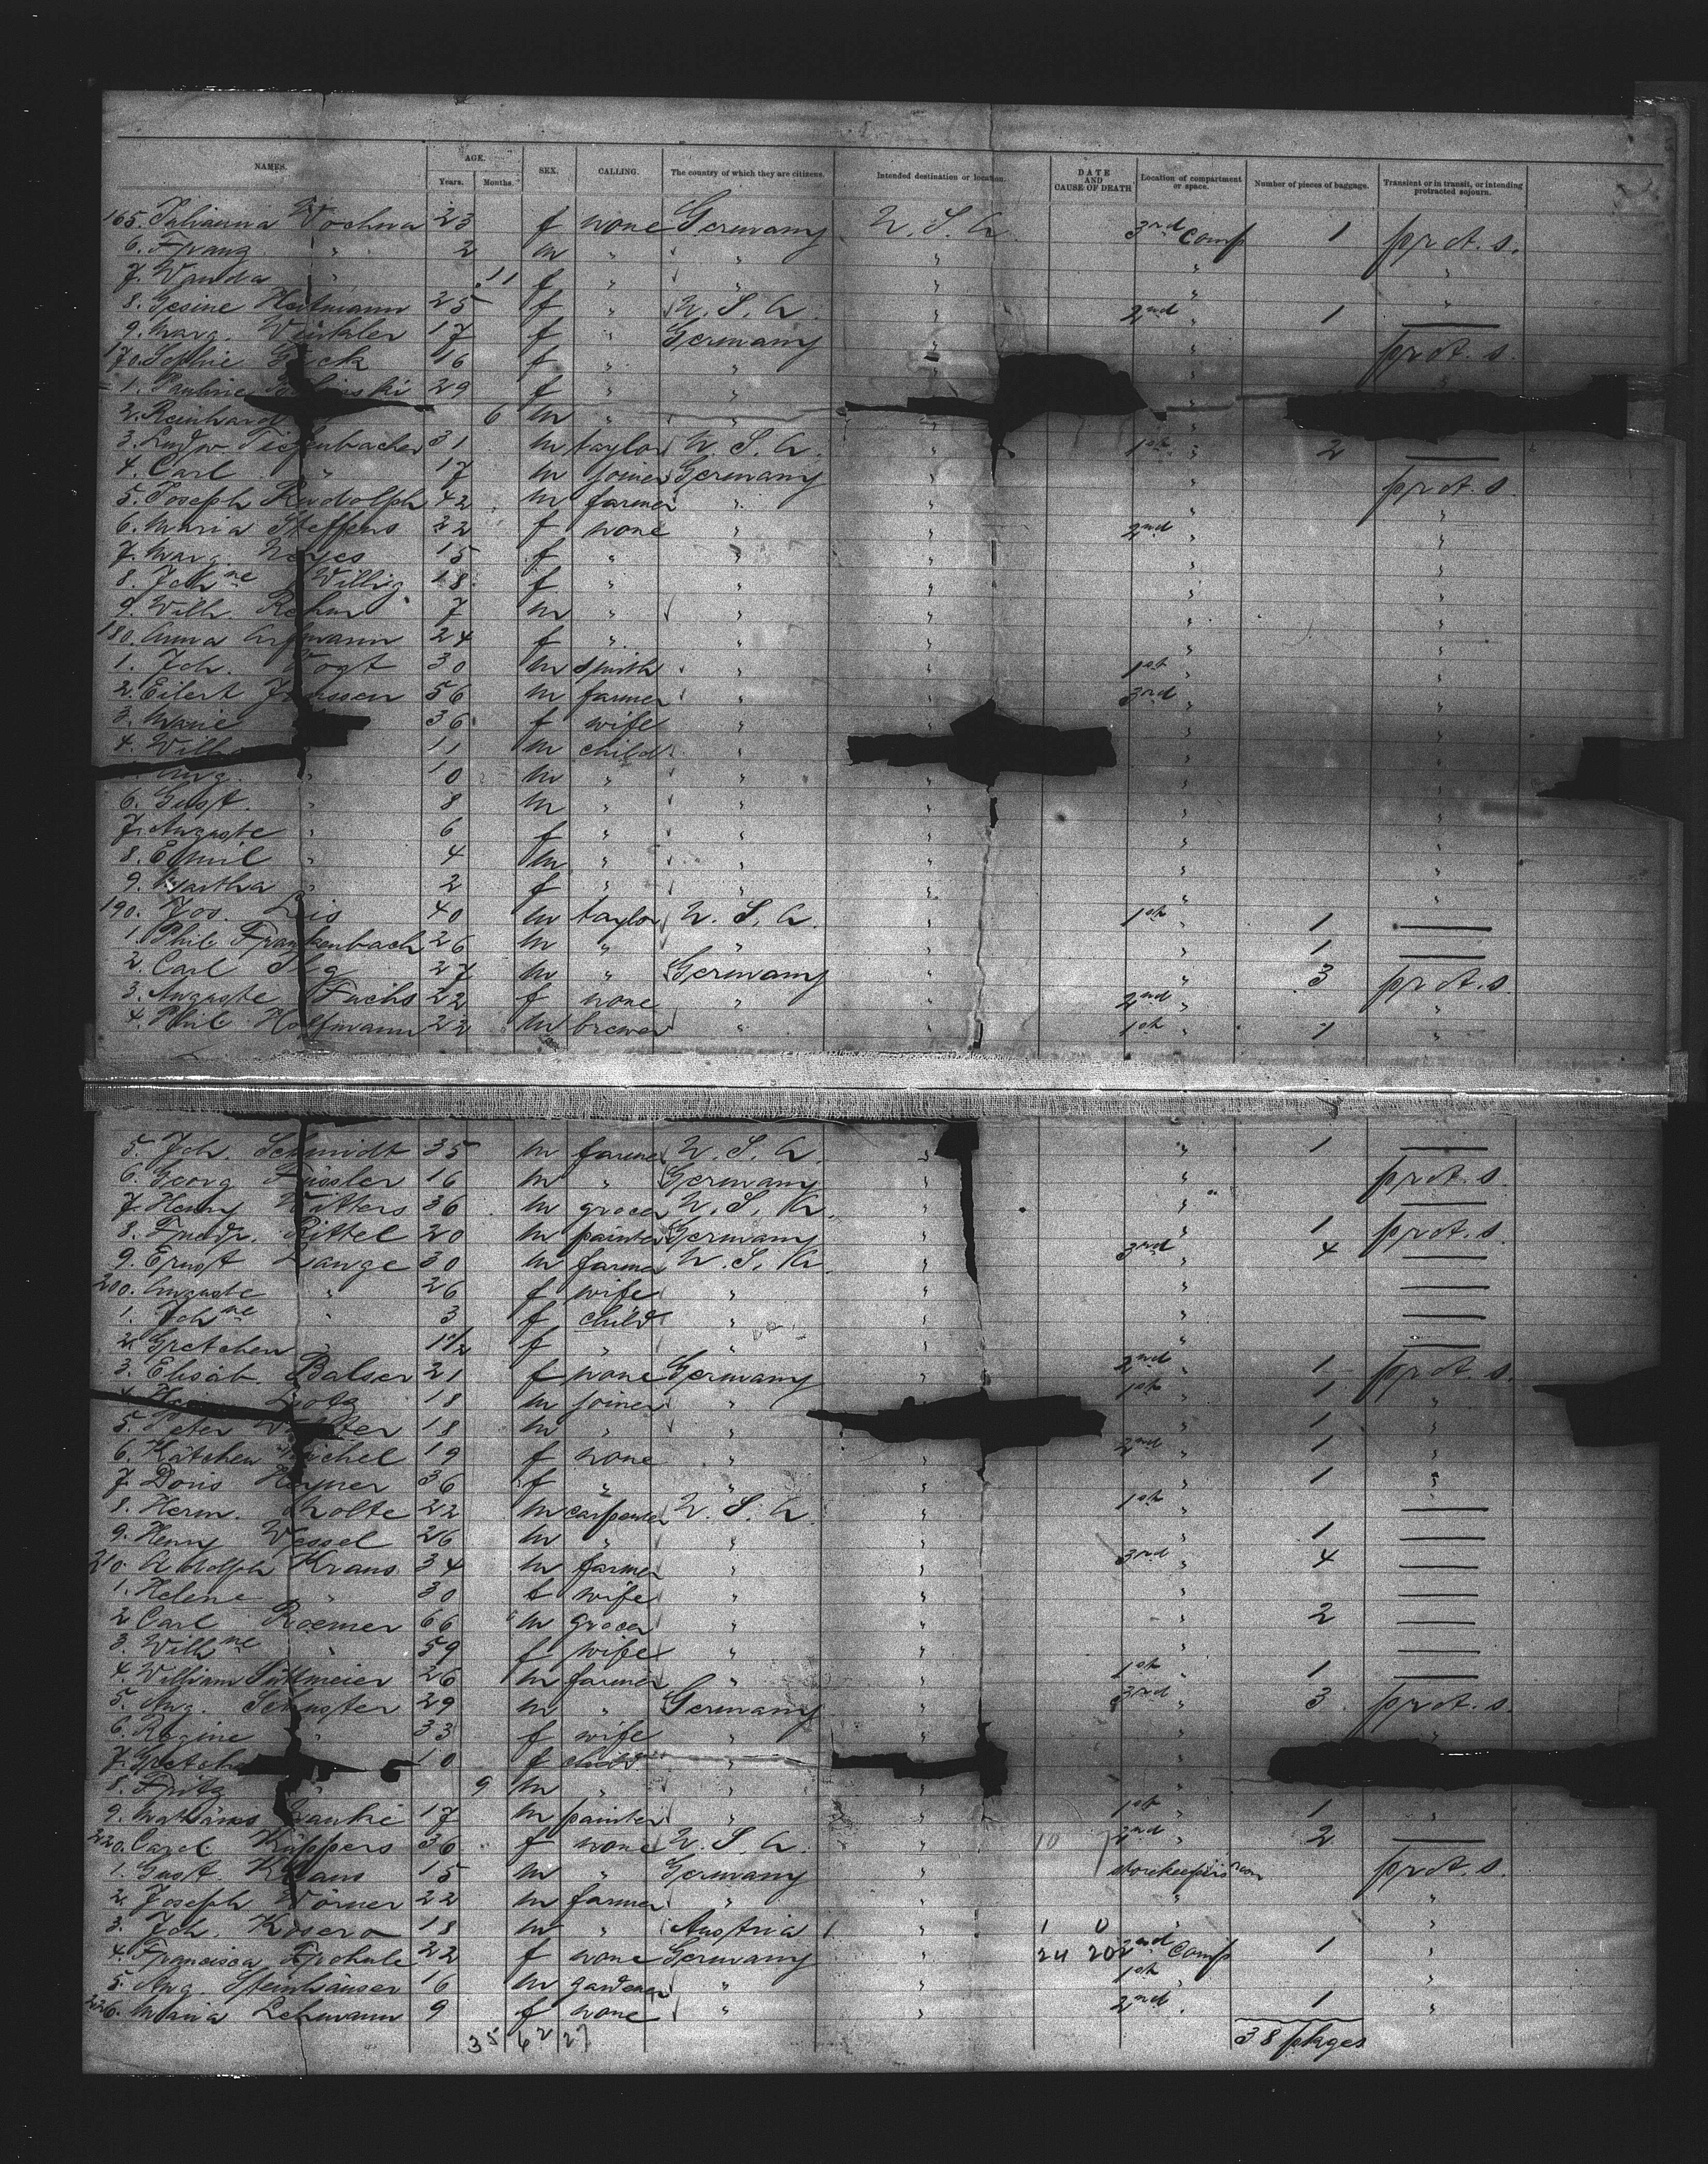 NAMES. AGE. Years. Months. SEX. CALLING. The country of which they are citizens. Intended destination or location. DATE AND CAUSE OF DEATH Location of compartment or space. Number of pieces of baggage. Transient or in transit, or intending protracted sojourn.
165. Julianna Wochna 23 f none Germany U. S. A. 3rd Comp 1 prot. s.
6. Franz " 2 m " " " " "
7. Wanda " 11 f " " " " "
8. Gesine Hartmann 25 f " U. S. A. " 2nd " 1 —
9. Marg. Winkler 17 f " Germany " " prot. s.
170. Sophie 16 f " " "
1. Pauline 29 f " "
2. Reinhard 6 m " "
3. Ludw. Tiefenbacher 31 m taylor U. S. A. " 1st " 2 —
4. Carl " 17 m joiner Germany " " prot. s.
5. Joseph Rudolph 42 m farmer " " " "
6. Maria Steffens 22 f none " " 2nd " "
7. Marg. 15 f " " " " "
8. Joh.ne Willig 18 f " " " " "
9. Wilh. Rehm 7 m " " " " "
180. Anna 24 f " " " " "
1. Joh. Vogt 30 m smith " " 1st " "
2. Eilert Janssen 56 m farmer " " 3rd " "
3. Marie 36 f wife " " "
4. Wilh. 11 m child " " "
Aug. " 10 m " " " " "
6. Gust. " 8 m " " " " "
7. Auguste " 6 f " " " " "
8. Emil " 4 m " " " " "
9. Martha " 2 f " " " " "
190. Jos. 40 m taylor U. S. A. " 1st " 1 —
1. Phil. Frankenbach 26 m " " " " 1 —
2. Carl 27 m " Germany " " 3 prot. s.
3. Auguste Fuchs 22 f none " " 2nd " "
4. Phil. Hoffmann 22 m brewer " " 1st " 1 "
5. Joh. Schmidt 35 m farmer U. S. A. " " 1 —
6. Georg Füssler 16 m " Germany " " prot. s.
7. Henry Watters 36 m grocer U. S. A. " " —
8. Friedr. Rittel 20 m painter Germany " " 1 prot. s.
9. Ernst Lange 30 m farmer U. S. A. " 3rd " 4 —
200. Auguste " 26 f wife " " " —
1. Joh.ne " 3 f child " " " —
2. Gretchen " 1 1/2 f " " " " —
3. Elisab. Balser 21 f none Germany " 2nd " 1 prot. s.
4. Lotz 18 m joiner " 1st " 1 "
5. Peter 18 m " " " 1 "
6. Kätchen Michel 19 f none " " 2nd " 1 "
7. Doris Heyner 36 f " " " " 1 "
8. Herm. Nolte 22 m carpenter U. S. A. " 1st " —
9. Henry Wessel 26 m " " " " 1 —
210. Adolph Kraus 34 m farmer " " 3rd " 4 —
1. Helene " 30 f wife " " " —
2. Carl Roemer 66 m grocer " " " 2 —
3. Wilh.ne " 59 f wife " " " —
4. William 26 m farmer " " 1st " 1 —
5. Aug. Schuster 29 m " Germany " 3rd " 3 prot. s.
6. Regine " 33 f wife " " " "
7. Gretch 10 f child " "
8. Fritz " 9 m " " " "
9. Mathäus 17 m painter " " 1st " 1 "
220. Carol. Küppers 36 f none U. S. A. " 10 2nd " 2 —
1. Gust. Kraus 15 m " Germany " storekeepers room prot. s.
2. Joseph Körner 22 m farmer " " " "
3. Joh. Kosera 18 m " Austria 1 " 1 0 " "
4. Francisca 22 f none Germany " 24 20 2nd Comp 1 "
5. Aug. Steinhäuser 16 m gardener " " 1st " "
226. Maria Lehmann 9 f none " " 2nd " 1 "
35 62 27 38 pkges